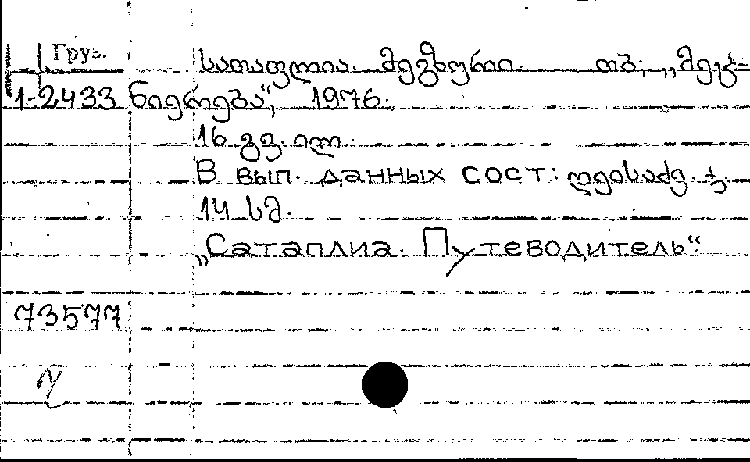 Груз. სათაფლია. მეგზური. თბ., „მეც-
1-2433 ნიერება“, 1976.
16 გვ. ილ.
В вып. данных сост: ღვისაძე. ჯ.
14 სმ.
„Сатаплиа. Путеводитель“
73577